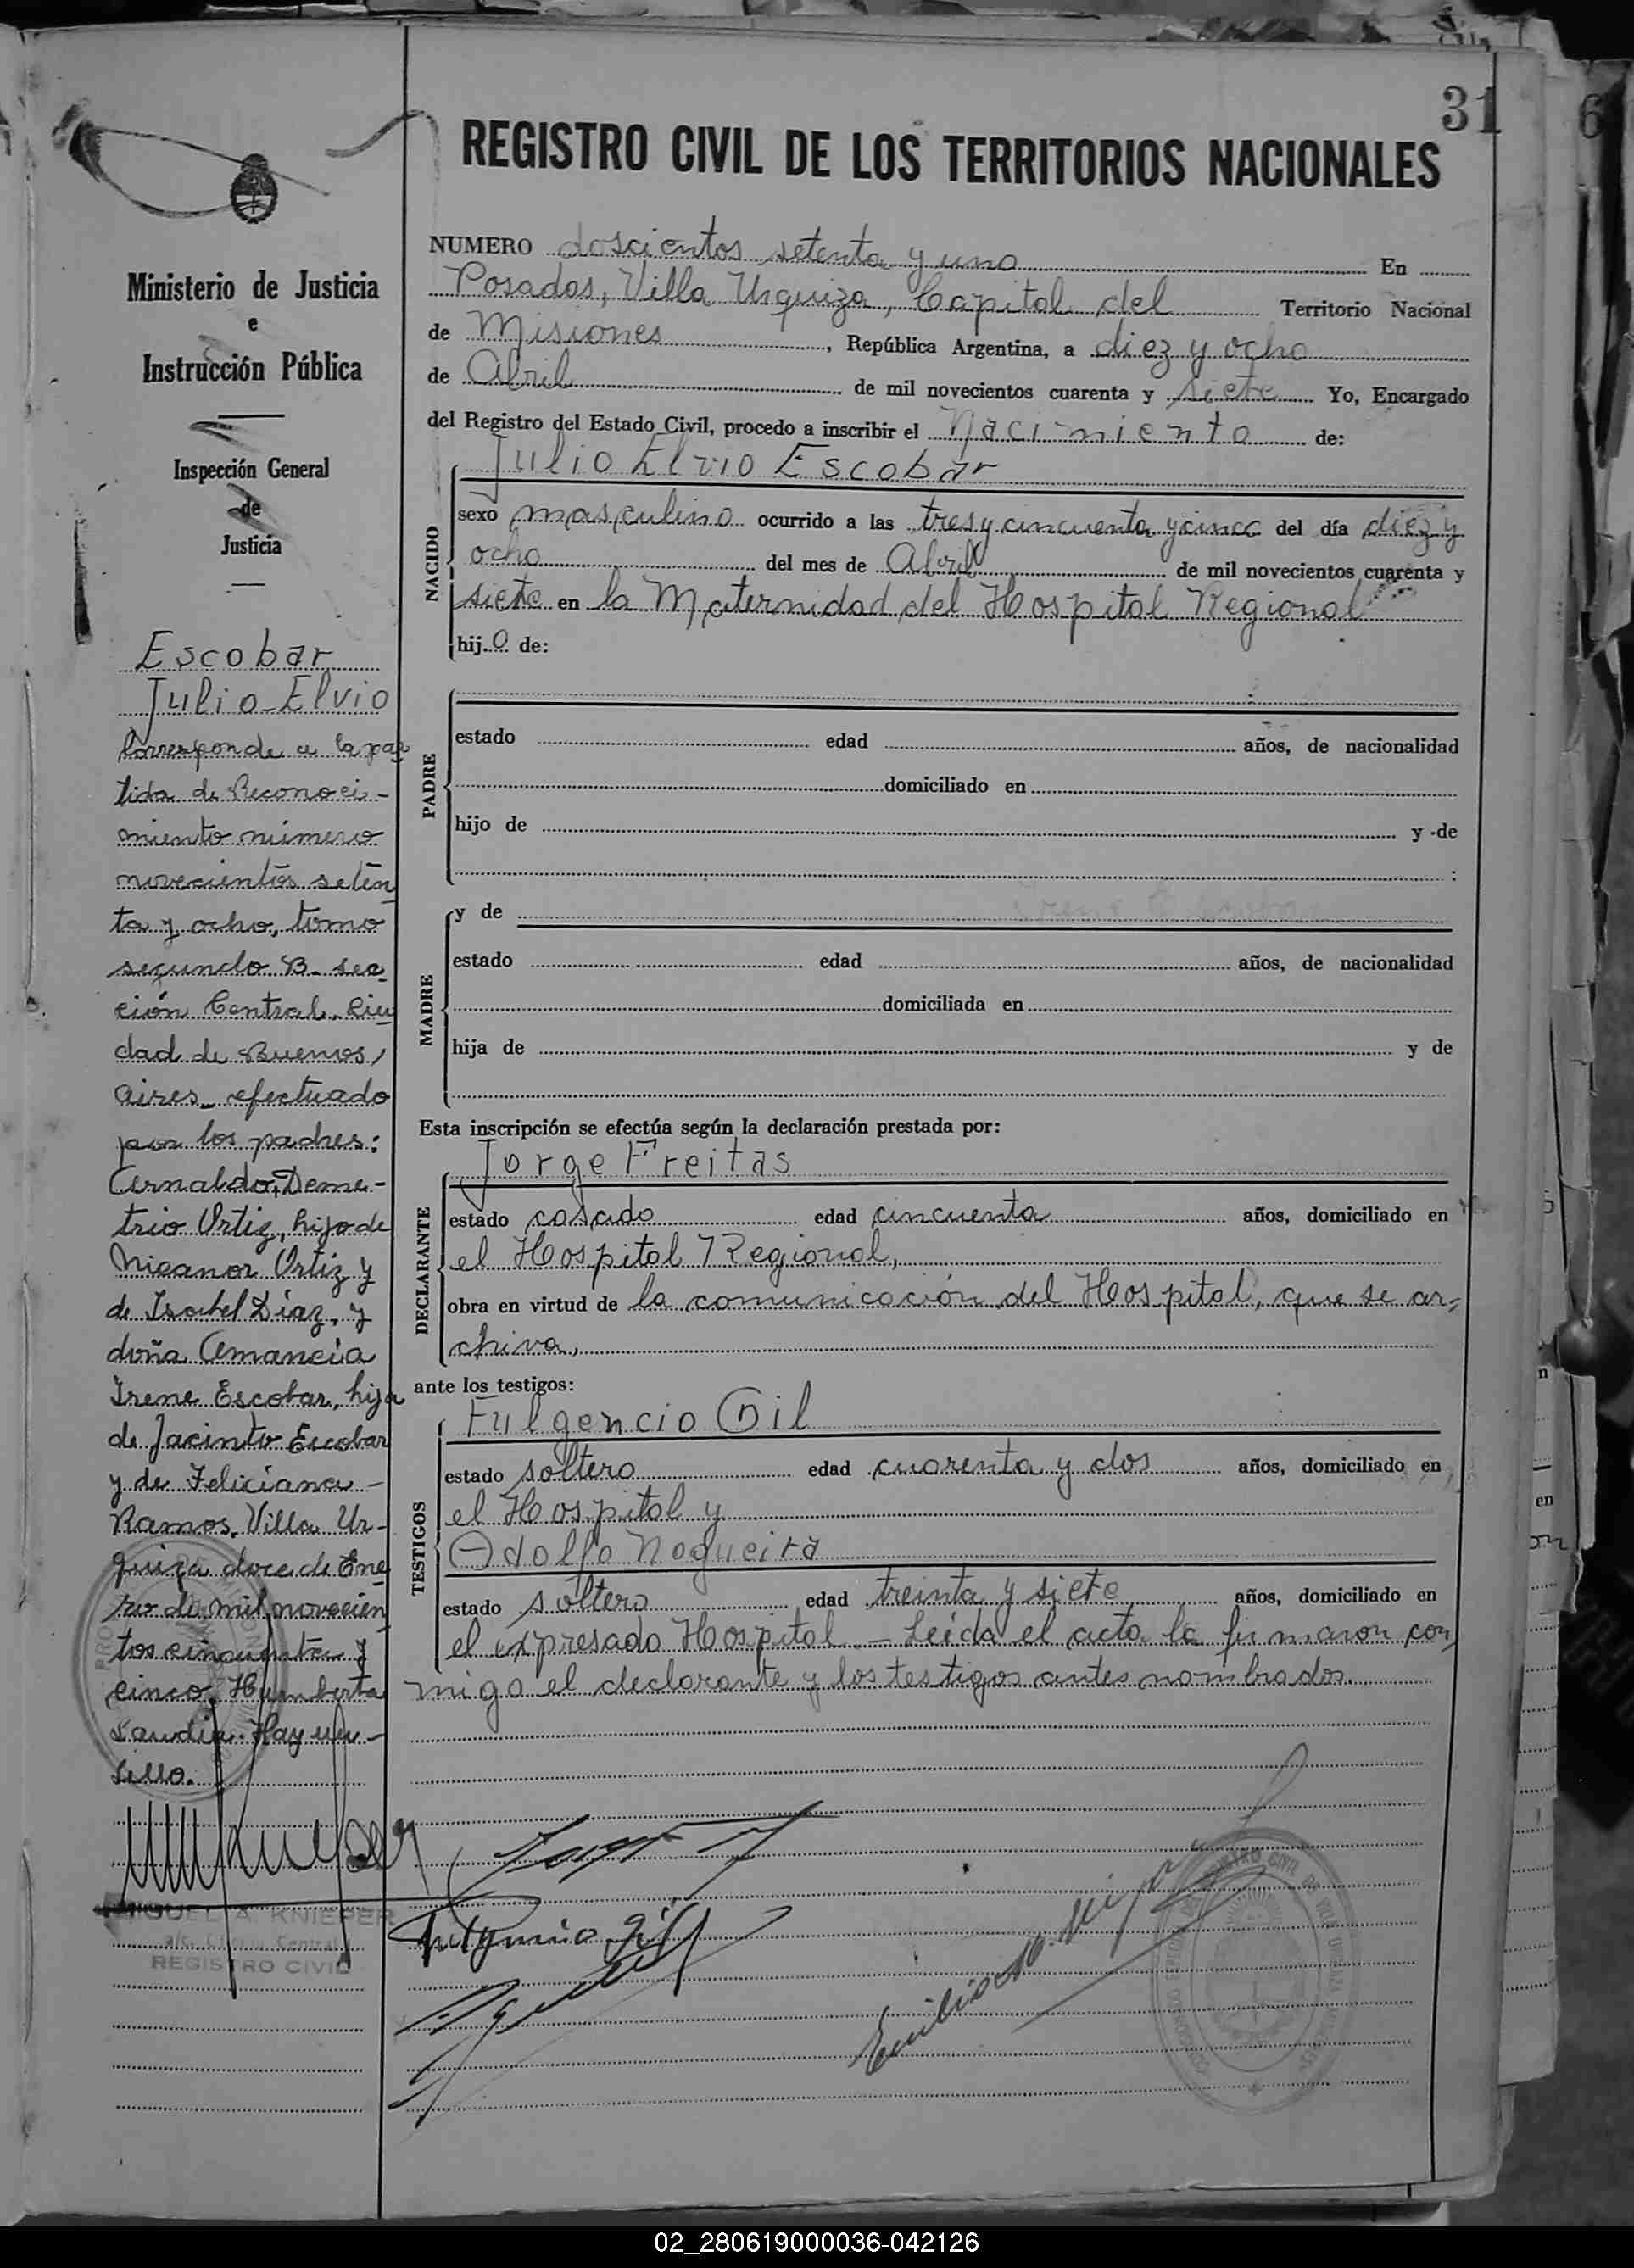 31
REGISTRO CIVIL DE LOS TERRITORIOS NACIONALES
Ministerio de Justicia
e
Instrucción Pública
Inspección General
de
Justicia
Escobar
Julio Elvio
Corresponde a la par
tida de Reconoci-
miento número
novecientos seten
ta y ocho, tomo
segundo B. sec
ción Central. Ciu
dad de Buenos
Aires efectuado
por los padres:
Arnaldo Deme-
trio Ortiz, hijo de
Nicanor Ortiz y
de Isabel Díaz, y
doña Amancia
Irene Escobar, hija
de Jacinto Escobar
y de Feliciana
Ramos. Villa Ur-
quiza doce de Ene
ro de mil novecien
tos cincuenta y
cinco. Humberto
Hay un
sello.
MIGUEL A. KNIEPER
REGISTRO CIVIL
NUMERO doscientos setenta y uno En
Posadas, Villa Urquiza, Capital del Territorio Nacional
de Misiones, República Argentina, a diez y ocho
de Abril de mil novecientos cuarenta y siete Yo, Encargado
del Registro del Estado Civil, procedo a inscribir el Nacimiento de:
Julio Elvio Escobar
NACIDO
sexo masculino ocurrido a las tres y cincuenta y cinco del día diez y
ocho del mes de Abril de mil novecientos cuarenta y
siete en la Maternidad del Hospital Regional
hijo de:
PADRE
estado edad años, de nacionalidad
domiciliado en
hijo de y de
:
MADRE
y de
estado edad años, de nacionalidad
domiciliada en
hija de y de
Esta inscripción se efectúa según la declaración prestada por:
Jorge Freitas
DECLARANTE
estado casado edad cincuenta años, domiciliado en
el Hospital Regional,
obra en virtud de la comunicación del Hospital, que se ar=
chiva,
ante los testigos:
Fulgencio Gil
TESTIGOS
estado soltero edad cuarenta y dos años, domiciliado en
el Hospital y
Adolfo Nogueira
estado soltero edad treinta y siete años, domiciliado en
el expresado Hospital.- Leída el acta la firmaron con
migo el declarante y los testigos antes nombrados.
Fulgencio Gil
02_280619000036-042126